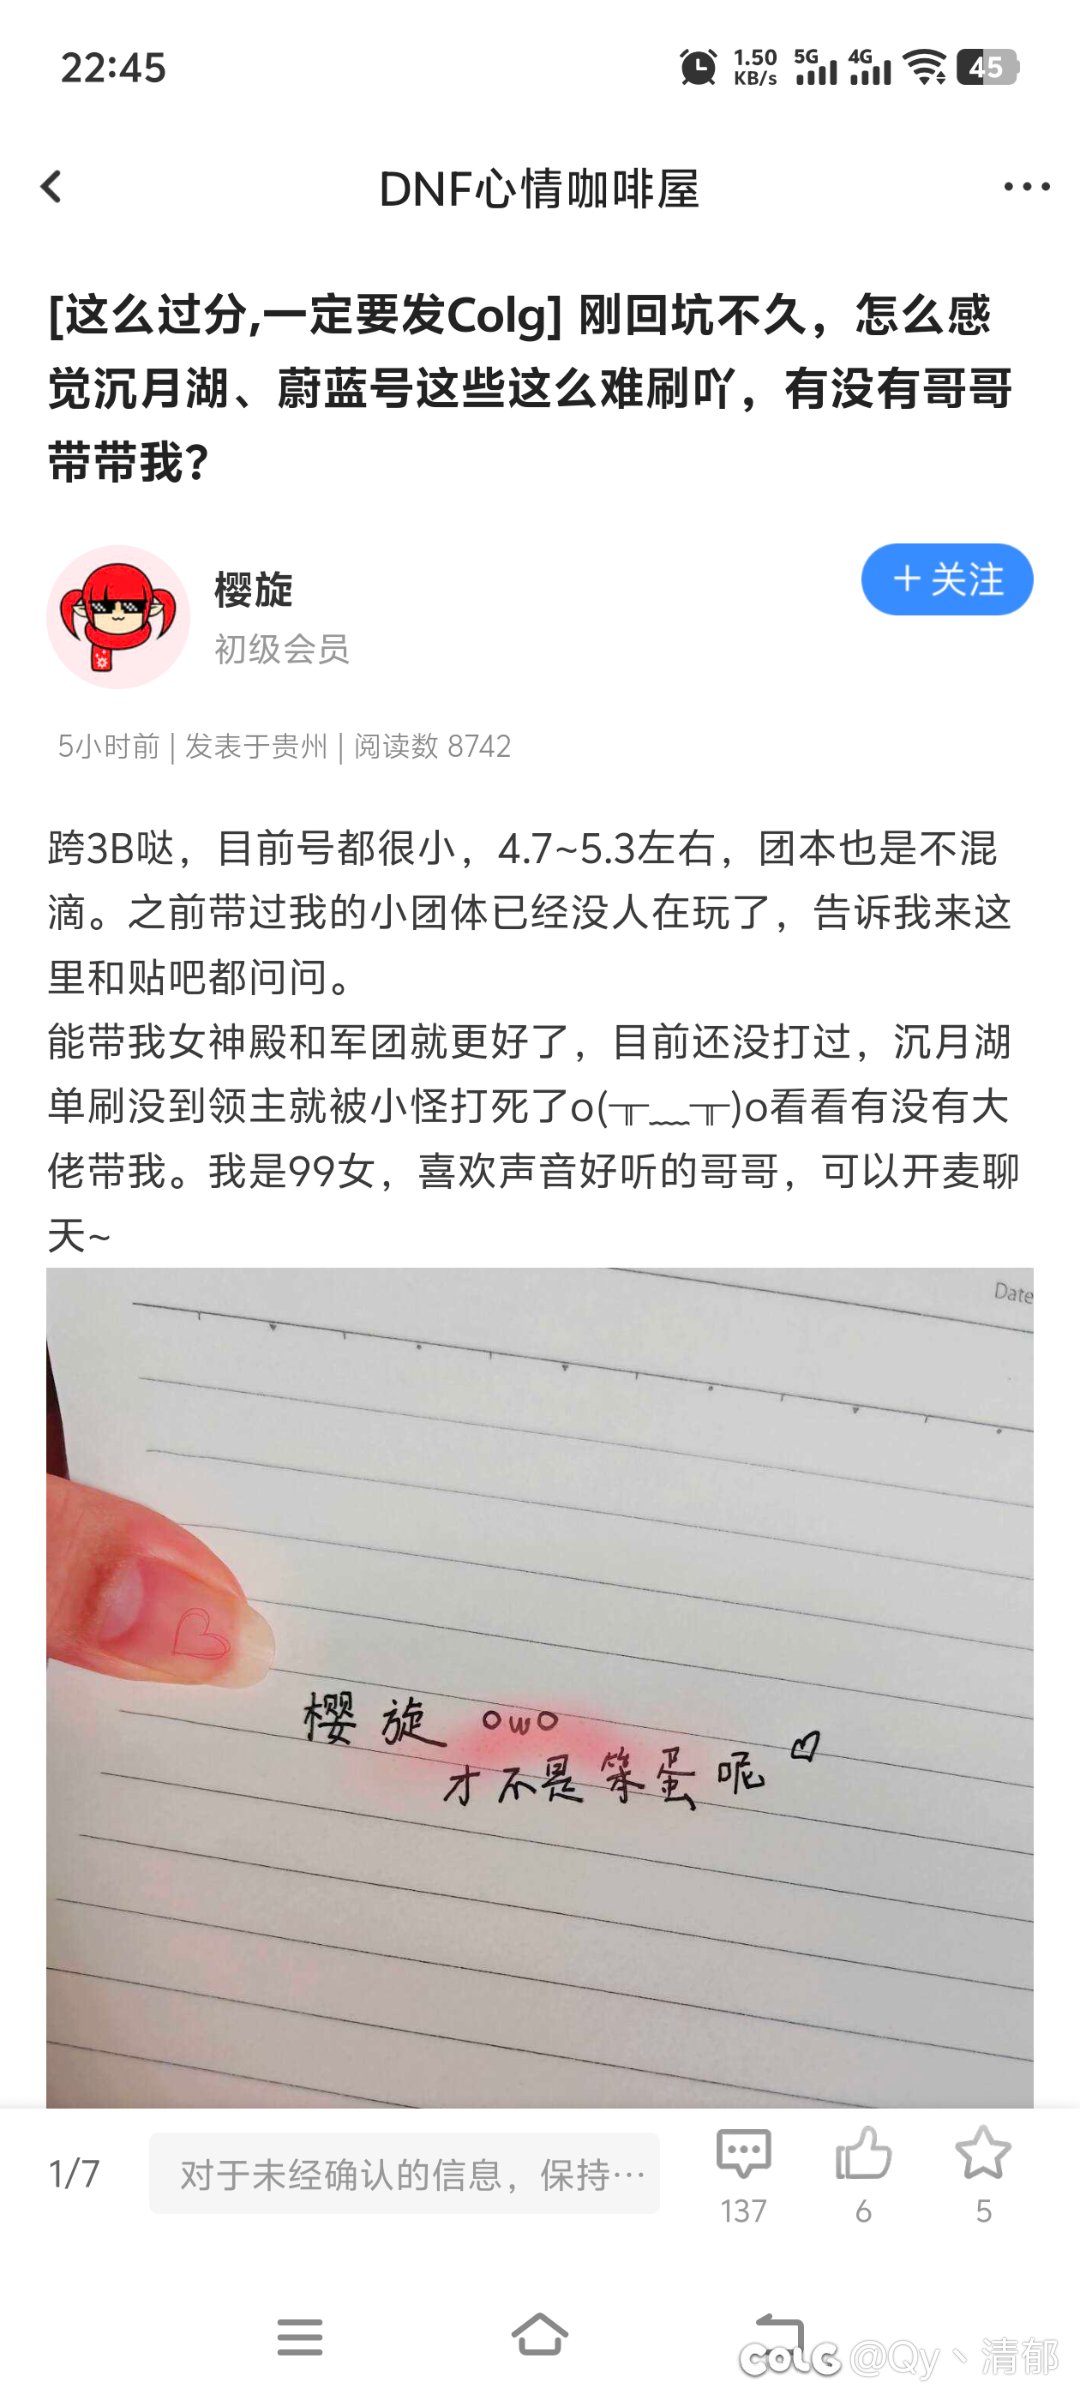 22:45
1.50 KB/s 5G 4G 45
DNF心情咖啡屋
[这么过分,一定要发Colg] 刚回坑不久，怎么感
觉沉月湖、蔚蓝号这些这么难刷吖，有没有哥哥
带带我？
樱旋
初级会员
+ 关注
5小时前 | 发表于贵州 | 阅读数 8742
跨3B哒，目前号都很小，4.7~5.3左右，团本也是不混
滴。之前带过我的小团体已经没人在玩了，告诉我来这
里和贴吧都问问。
能带我女神殿和军团就更好了，目前还没打过，沉月湖
单刷没到领主就被小怪打死了o(╥﹏╥)o看看有没有大
佬带我。我是99女，喜欢声音好听的哥哥，可以开麦聊
天~
Date
樱旋 owo
才不是笨蛋呢
1/7
对于未经确认的信息，保持…
137
6
5
COLG @Qy丶清郁